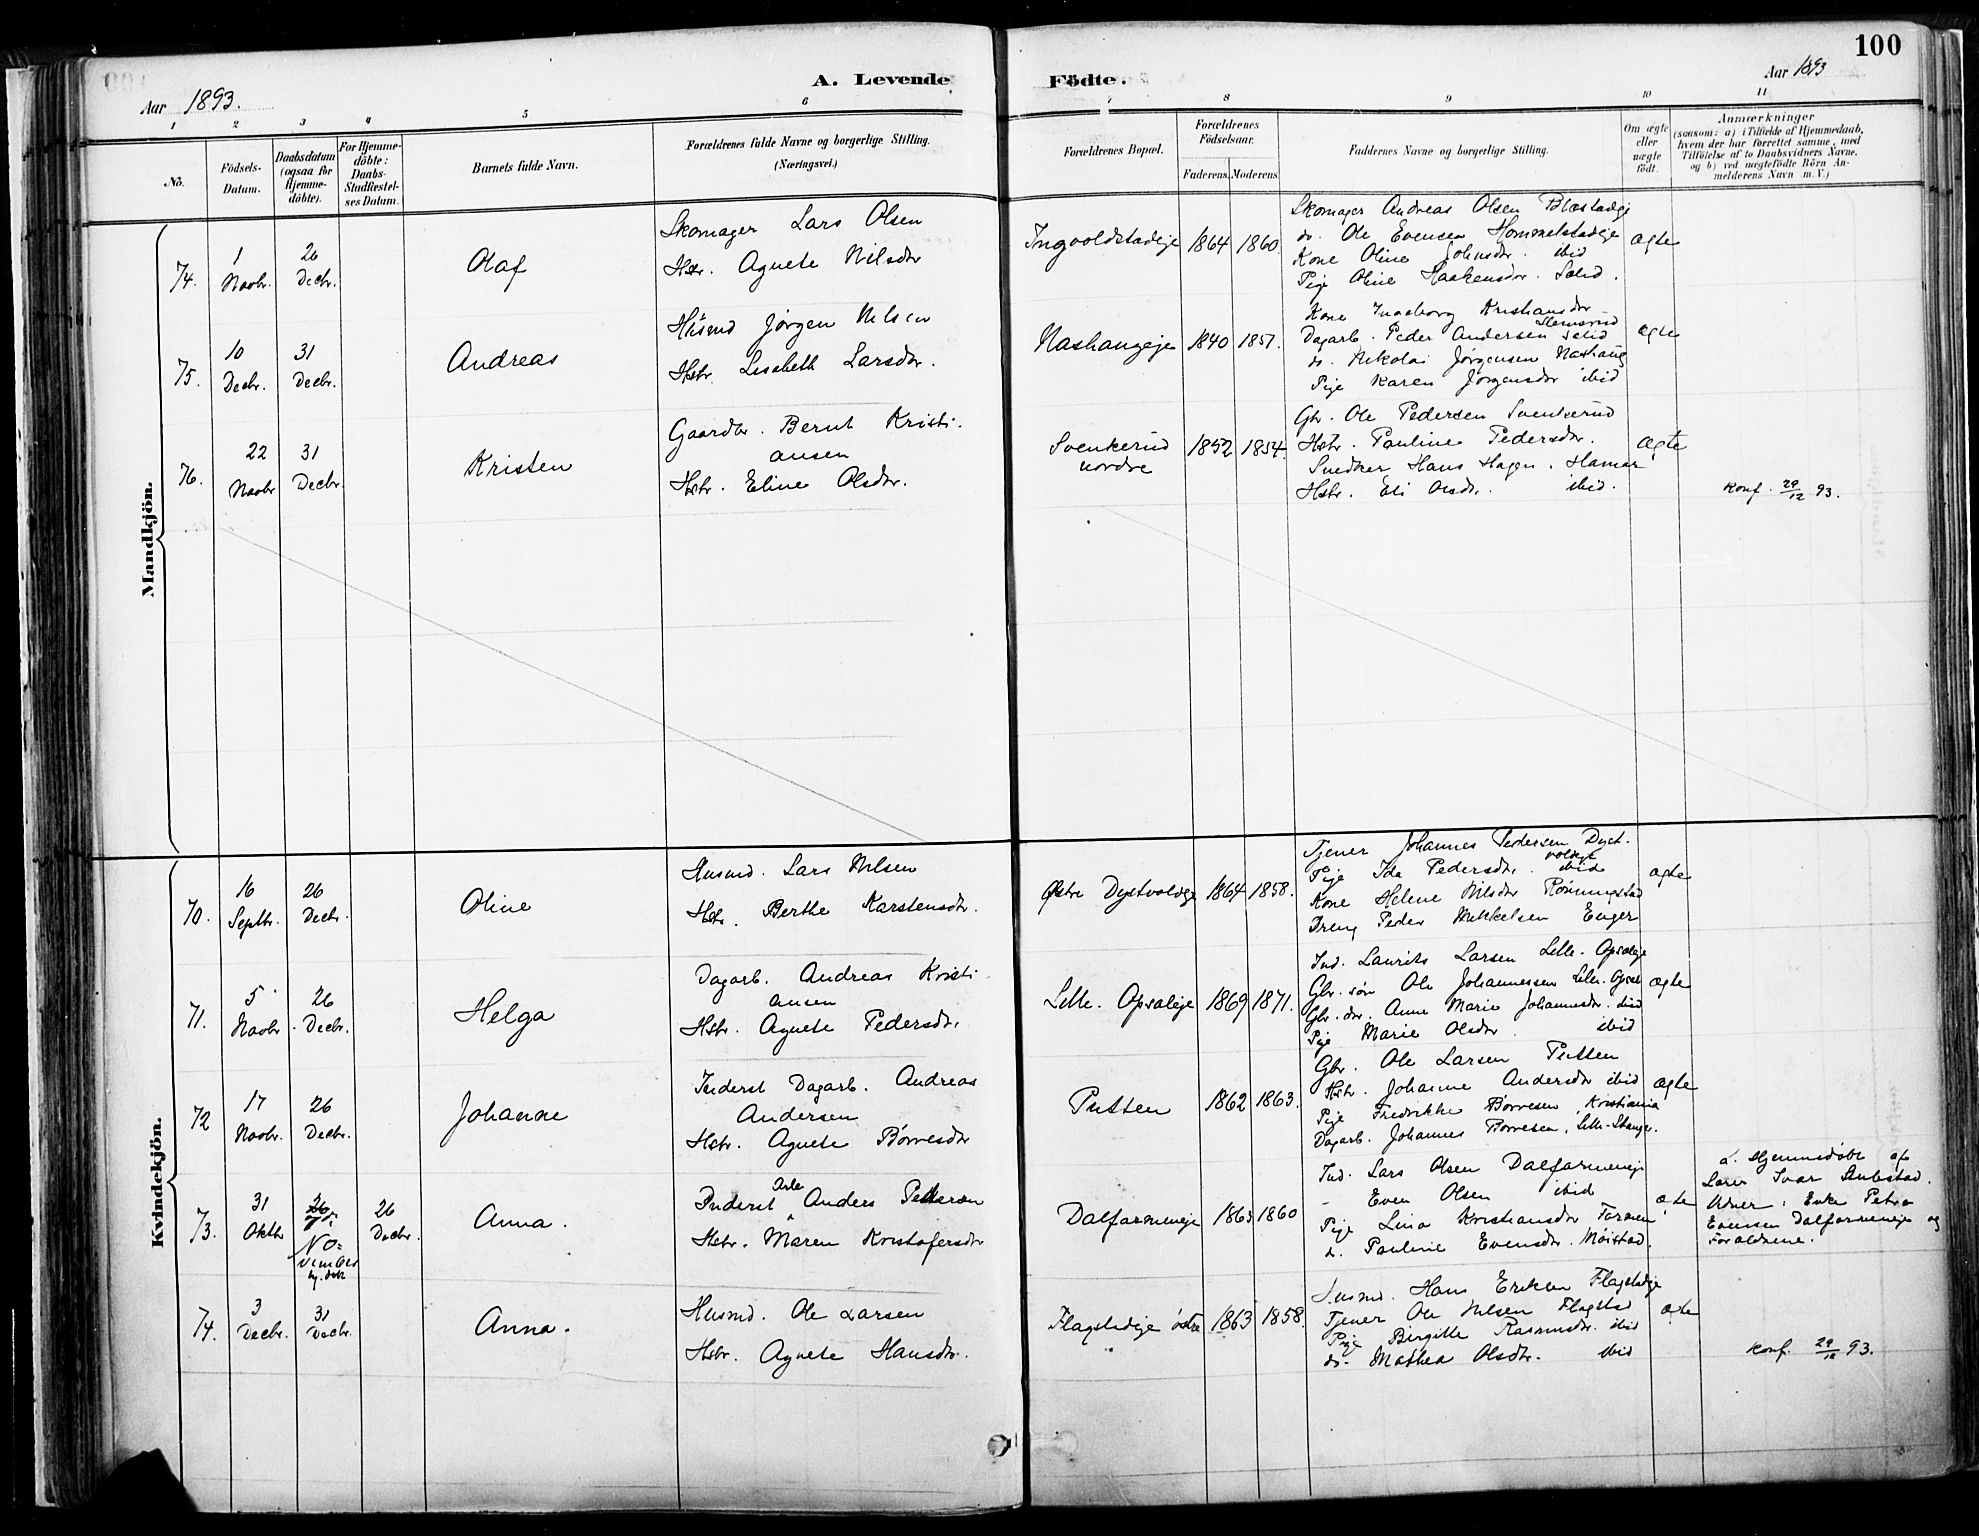 100
A. Levende Födte.
Aar 1893.
Aar 1893
1 2 3 4 5 6 7 8 9 10 11
No.
Födsels-
Datum.
Daabsdatum
(ogsaa for
Hjemme-
döbte).
For Hjemme-
döbte:
Daabs-
Stadfestel-
ses Datum.
Barnets fulde Navn.
Forældrenes fulde Navne og borgerlige Stilling.
(Næringsvei.)
Forældrenes Bopæl.
Forældrenes
Födselsaar.
Faderens. Moderens.
Faddernes Navne og borgerlige Stilling.
Om ægte
eller
uægte
födt.
Anmærkninger
(saasom: a) i Tilfælde af Hjemmedaab,
hvem der har forrettet samme, med
Tilföielse af to Daabsvidners Navne,
og b) ved uægtefödte Börn An-
melderens Navn m. V.)
Mandkjön.
74.
1
Novbr.
26
Decbr.
Olaf
Skomager Lars Olsen
Hstr. Agnete Nilsdtr
Ingvoldstadeje
1864
1860.
Skomager Andreas Olsen Blæstadeje
do. Ole Evensen Hommelstadeje
Kone Oline Johnsdtr. ibid
Pige Oline Haakensdtr.
ægte
75.
10
Decbr.
31
Decbr.
Andreas
Husmd Jørgen Nilsen
Hstr. Lisabeth Larsdtr.
Nashaugeje
1840
1857.
Kone Ingeborg Kristiansdtr
Dagarb. Peder Andersen
do. Nikolai Jørgensen Nashaug
Pige Karen Jørgensdtr ibid
ægte
76.
22
Novbr
31
Decbr.
Kristen
Gaardbr. Bernt Kristi-
ansen
Hstr. Eline Olsdtr.
Svenkerud
nordre
1852
1854.
Gbr. Ole Pedersen Svenkerud
Hstr. Pauline Pedersdtr.
Snedker Hans Hagen. Hamar
Hstr. Eli Olsdtr. ibid.
ægte
Konf. 29/12 93.
Kvindekjön.
70.
16
Septbr.
26
Decbr.
Oline
Husmd. Lars Nilsen
Hstr. Berthe Karstensdtr.
Østre Dystvoldeje
1864
1858.
Tjener Johannes Pedersen Dyst-
voldeje
Pige Ida Pedersdtr. ibid
Kone Helene Nilsdtr Rønningstad
Dreng Peder Mikkelsen Enger
ægte
71.
5
Novbr.
26
Decbr.
Helga
Dagarb. Andreas Kristi-
ansen
Hstr. Agnete Pedersdtr.
Lille-Opsaleje
1869
1871.
Ind. Laurits Larsen Lille-Opsaleje
Gbr. søn Ole Johannessen Lille-Opsal
Gbr. dtr. Anne Marie Johannesdtr. ibid
Pige Marie Olsdtr ibid
ægte
72
17
Novbr.
26
Decbr.
Johanne
Inderst Dagarb. Andreas
Andersen
Hstr. Agnete Børresdtr
Putten
1862
1863.
Gbr. Ole Larsen Putten
Hstr. Johanne Andersdtr ibid
Pige Fredrikke Børresen, Kristiania
Dagarb. Johannes Børresen, Lille-Stange.
ægte
73.
31
Oktbr
No-
vember
26
Decbr.
Anna.
Inderst Anders Pedersen
Hstr. Maren Kristofersdtr
Dalfarmeneje
1863
1860
Ind. Lars Olsen Dalfarmeneje
- Even Olsen ibid
Pige Lina Kristiansdtr Farmen
do. Pauline Evensdtr. Moistad.
ægte
a. Hjemmedøbt af
Lærer Ivar
Vidner: Enke Petra
Evensen Dalfarmeneje og
Forældrene.
74.
3
Decbr.
31
Decbr.
Anna.
Husmd. Ole Larsen
Hstr. Agnete Hansdtr.
Flagstadeje østre
1863
1858.
Husmd. Hans Eriksen Flagstadeje
Tjener Ole Nilsen Flagstad
Pige Birgitte Rasmusdtr. ibid
do. Mathea Olsdtr. ibid
ægte
Konf. 29/12 93.